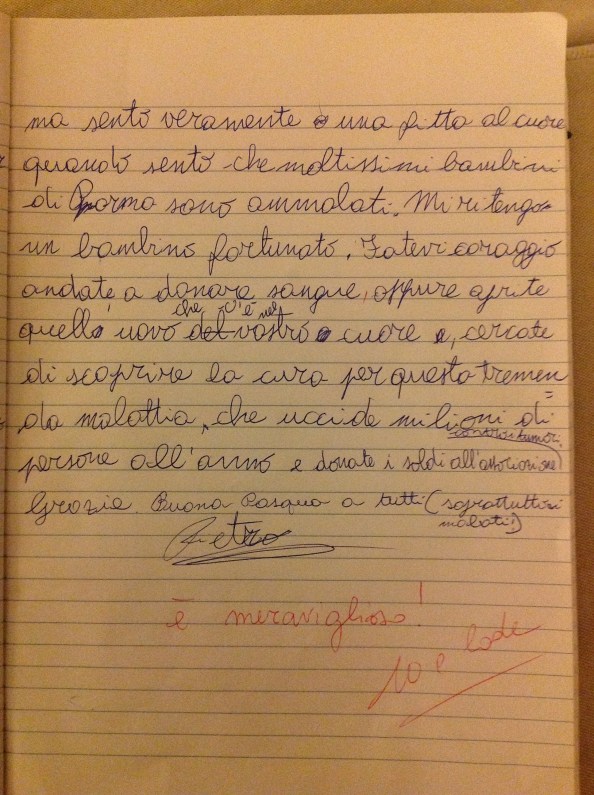 ma sento veramente una fitta al cuore
quando sento che moltissimi bambini
di Parma sono ammalati. Mi ritengo
un bambino fortunato. Fatevi coraggio
andate a donare sangue, oppure aprite
che c'è nel
quello uovo del vostro cuore e, cercate
di scoprire la cura per questa tremen
da malattia, che uccide milioni di
contro i tumori.
persone all'anno e donate i soldi all'associazione
Grazie. Buona Pasqua a tutti (soprattutto i
malati!)
Pietro
è meraviglioso!
10 e lode